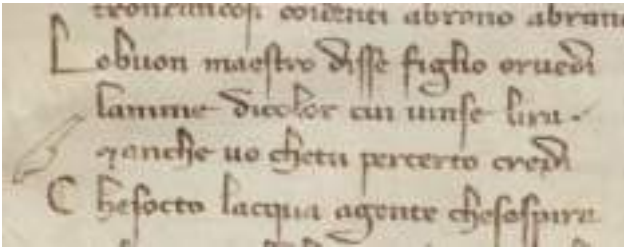 troncandosi abrano abran
Lobuon maestro disse figlio oruedi
lanime dicolor cui uinse lira
⁊anche uo chetu percerto credi
Chesocto lacqua agente chesospira